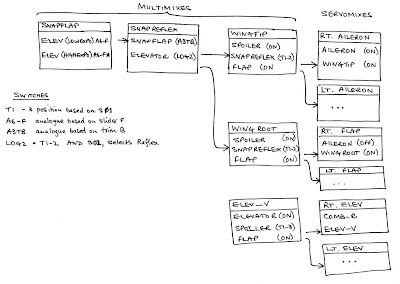 MULTIMIXES
SERVOMIXES
SNAPFLAP
ELEV (LOWEXPS) A6-F
ELEV (HIGHEXPS) A6-F
SNAPREFLEX
SNAPFLAP (A3TB)
ELEVATOR (LOG2)
WINGTIP
SPOILER (ON)
SNAPREFLEX (T1-2)
FLAP (ON)
RT. AILERON
AILERON (ON)
WINGTIP (ON)
LT. AILERON
...
SWITCHES
T1 - 3 position based on
A6-F analogue based on slider F
A3TB analogue based on trim B
LOG2 = T1-2 AND selects Reflex
WINGROOT
SPOILER (ON)
SNAPREFLEX (T1-2)
FLAP (ON)
RT. FLAP
AILERON (OFF)
WINGROOT (ON)
LT. FLAP
...
ELEV_V
ELEVATOR (ON)
SPOILER (T1-3)
FLAP (ON)
RT. ELEV
COMB_R
ELEV_V
LT. ELEV
...